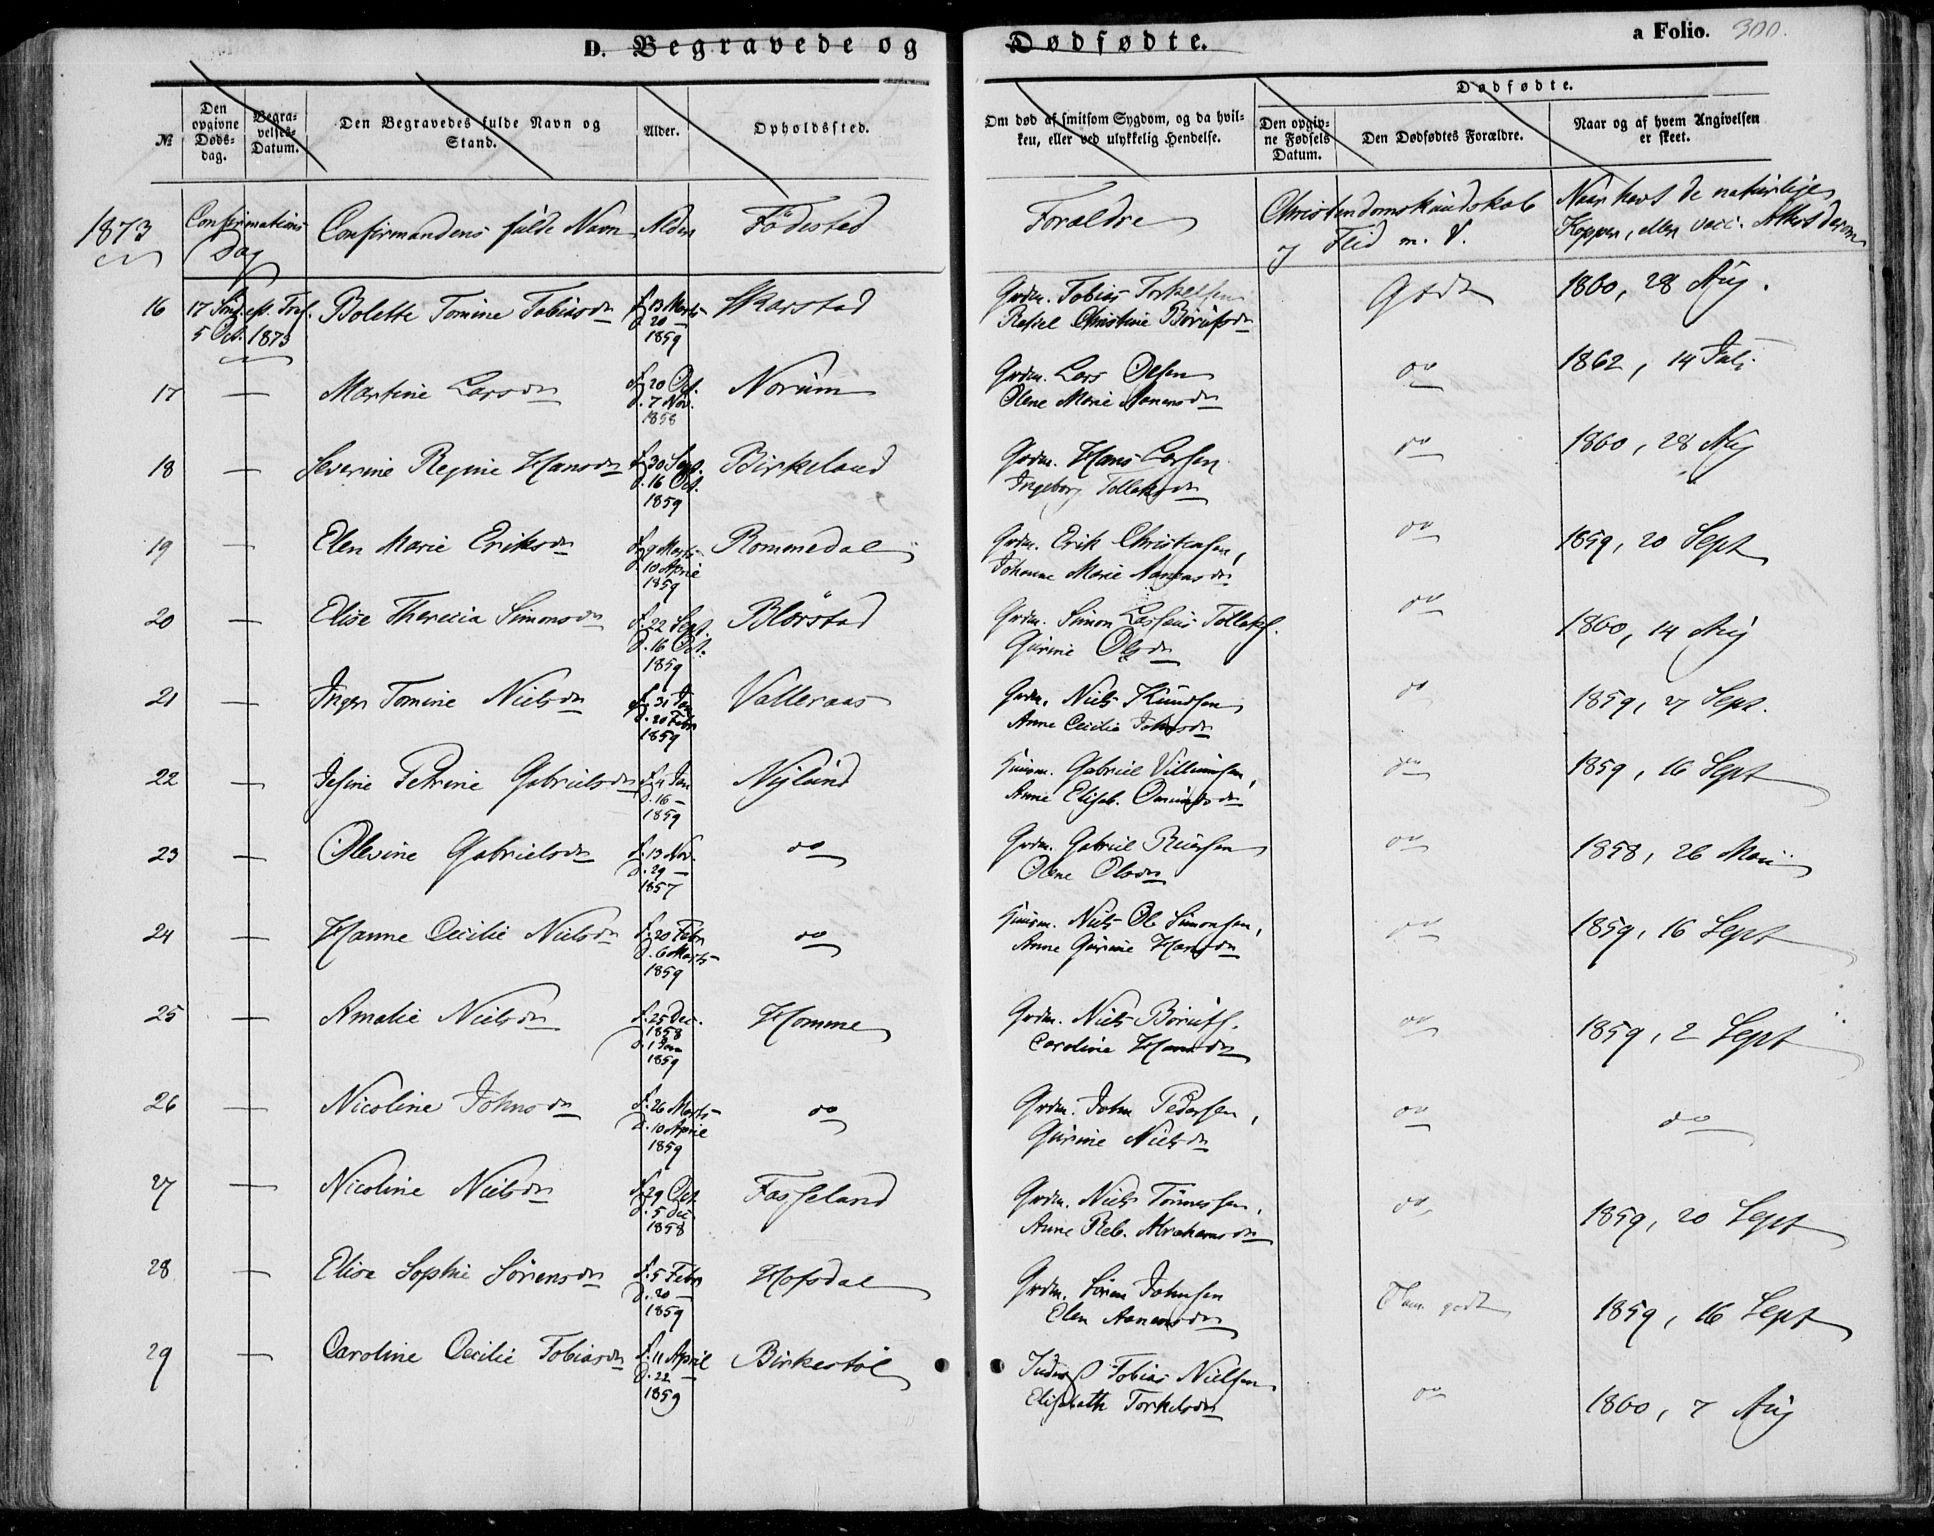 D. Begravede og Dødfødte.
a Folio. 300.
№
Den opgivne Døds-dag.
Begra-velses-Datum.
Den Begravedes fulde Navn og Stand.
Alder.
Opholdssted.
Om død af smitsom Sygdom, og da hvil-ken, eller ved ulykkelig Hendelse.
Dødfødte.
Den opgiv-ne Fødsels Datum.
Den Dødfødtes Forældre.
Naar og af hvem Angivelsen er skeet.
1873
Confirmations Dag
Confirmandens fulde Navn
Alder
Födested
Forældre
Christendomskundskab og Flid m. V.
Naar havt de naturlige Kopper, eller vacc. Attest derom
16 17 Sönd. eft. Tref. 5 Oct. 1873 Bolette Tomine Tobiasdr f. 13 Marts d. 20 — 1859 Skarstad Grdm. Tobias Torkelsen Rakel Christine Börufsdr Godt 1860, 28 Aug.
17 — Martine Larsdr f. 20 Oct. d. 7 Nov. 1858 Norum Grdm. Lars Olsen Olene Marie Aanensdr do 1862, 14 Juli
18 — Severine Regine Hansdr f. 30 Sept. d. 16 Oct. 1859 Birkeland Grdm. Hans Larsen Ingeborg Tollaksdr do 1860, 28 Aug
19 — Elen Marie Eriksdr f. 9 Marts d. 10 April 1859 Rommedal Grdm. Erik Christensen, Johanne Marie Aanensdr do 1859, 20 Sept
20 — Elise Therecia Simonsdr f. 22 Sept. d. 16 Oct. 1859 Blörstad Grdm. Simon Lassenis Tollaks. Gurine Olsdr do 1860, 14 Aug
21 — Inger Tomine Nielsdr f. 31 Jan d. 20 Febr 1859 Valleraas Grdm. Niels Knudsen Anne Cecilia Johnsdr do 1859, 27 Sept.
22 — Josine Petrine Gabrielsdr f. 4 Jan d. 16 — 1859 Nylund Huusm. Gabriel Villumsen, Anne Elisab. Omundsdr do 1859, 16 Sept
23 — Olevine Gabrielsdr f. 13 Nov. d. 29 — 1857 do Grdm. Gabriel Reiersen Olene Olsdr do 1858, 26 Mai
24 — Hanne Cecilie Nielsdr f. 20 Febr d. 6 Marts 1859 do Huusm. Niels Ol. Simonsen, Anne Gurine Hansdr do 1859, 16 Sept
25 — Amalie Nielsdr f. 25 Dec. 1858 d. 1 Jan 1859 Homme Grdm. Niels Börufs. Caroline Hansdr do 1859, 2 Sept
26 — Nicoline Johnsdr f. 26 Marts d. 10 April 1859 do Grdm. John Pedersen, Gurine Nielsdr do do
27 — Nicoline Nielsdr f. 29 Oct. d. 5 Dec. 1858 Fasseland Grdm. Niels Tönnessen, Anne Reb. Abrahamsdr do 1859, 20 Sept
28 — Elise Sophie Sörensdr f. 5 Febr d. 20 — 1859 Hofsdal Grdm. Sören Johnsen Elen Aanensdr Tem. godt 1859, 16 Sept
29 — Caroline Cecilie Tobiasdr f. 11 April d. 22 — 1859 Birkestöl Tobias Nielsen Elisabeth Torkelsdr do 1860, 7 Aug